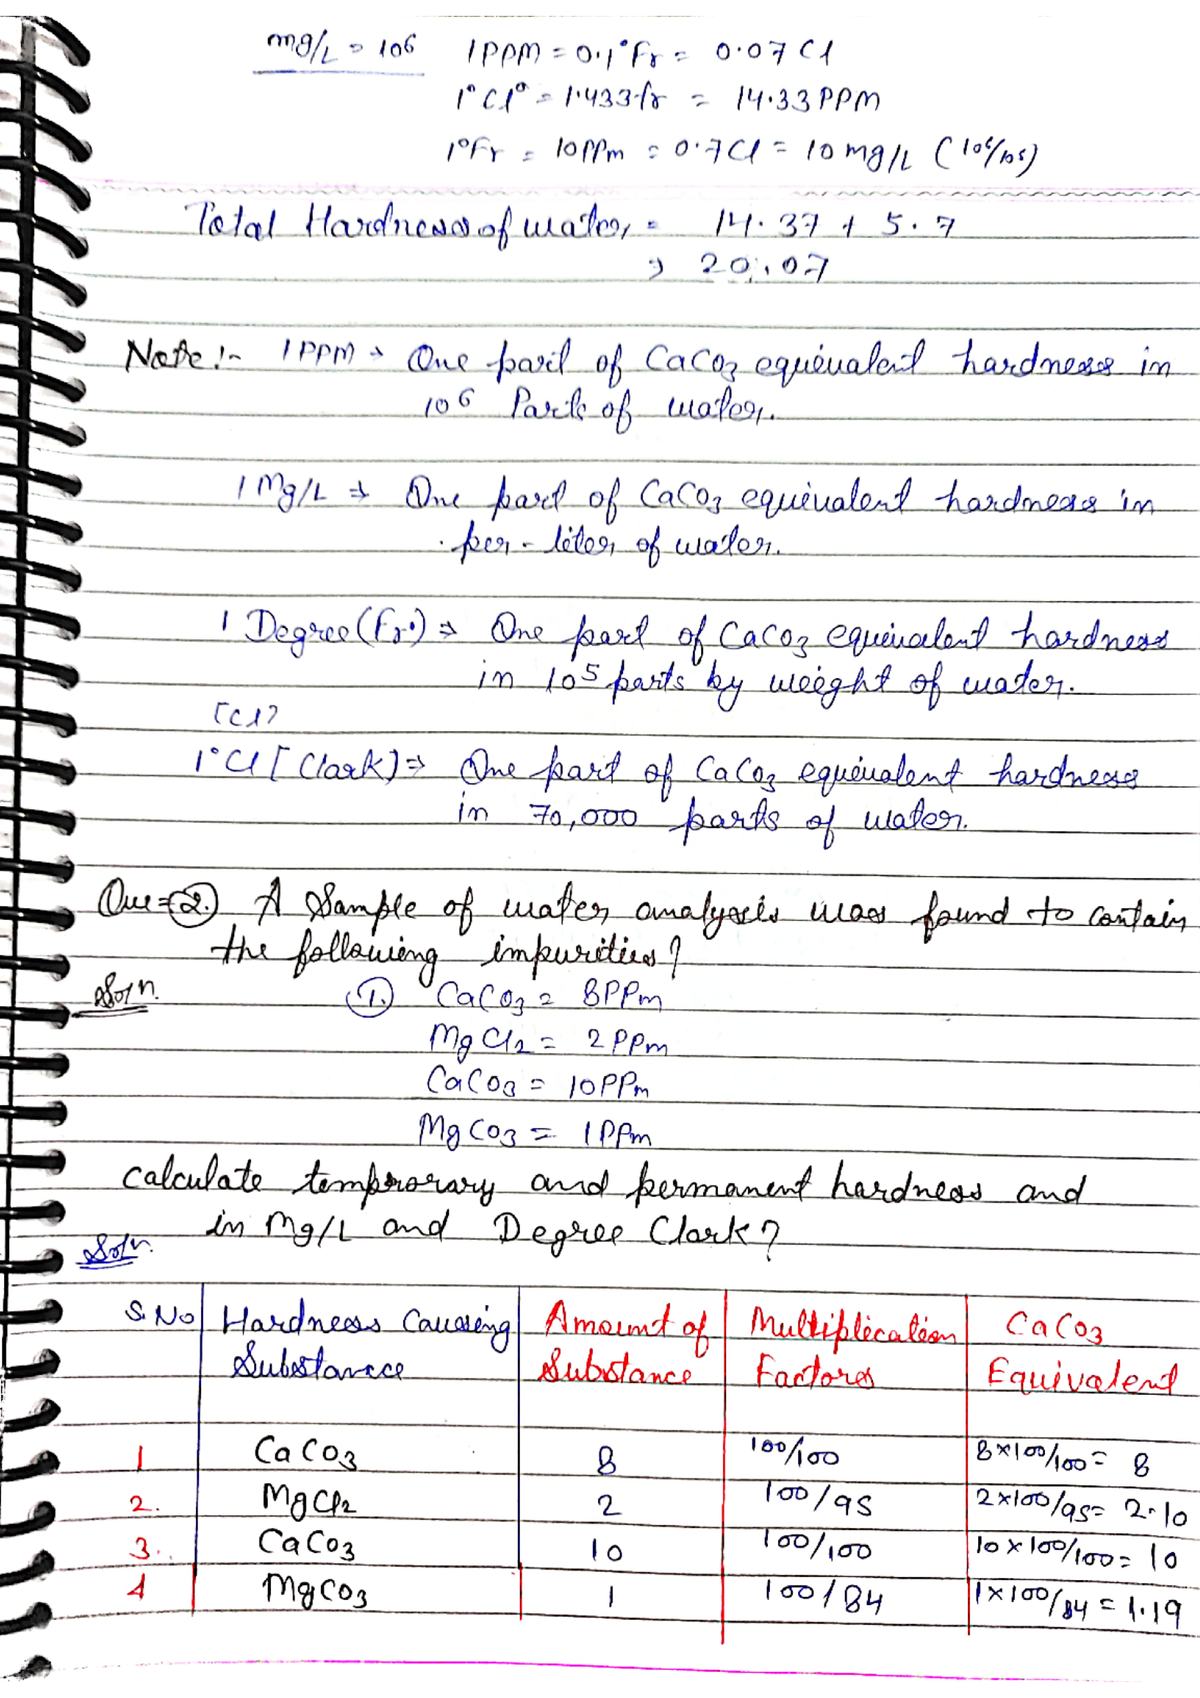 mg/L = 106 1PPM = 0.1°Fr = 0.07 Cl
1°Cl° = 1.433 fr = 14.33 PPM
1°Fr = 10PPm = 0.7Cl = 10 mg/L (10⁶/10⁵)
Total Hardness of water = 14.37 + 5.7
⇒ 20.07
Note:- 1PPM → One part of CaCO₃ equivalent hardness in
10⁶ Parts of water.
1 Mg/L ⇒ One part of CaCO₃ equivalent hardness in
per-liter of water.
1 Degree (Fr°) ⇒ One part of CaCO₃ equivalent hardness
in 10⁵ parts by weight of water.
[Cl]
1°Cl [Clark) ⇒ One part of CaCO₃ equivalent hardness
in 70,000 parts of water.
Que=(2.) A Sample of water analysis was found to contain
the following impurities?
Soln. (1.) CaCO₃ = 8PPm
MgCl₂ = 2PPm
CaCO₃ = 10PPm
MgCO₃ = 1PPm
calculate temprorary and permanent hardness and
in Mg/L and Degree Clark?
Soln.
S.No Hardness Causing Amount of Multiplication CaCO₃
Substance Substance Factors Equivalent
1 CaCO₃ 8 100/100 8×100/100 = 8
2. MgCl₂ 2 100/95 2×100/95 = 2.10
3. CaCO₃ 10 100/100 10×100/100 = 10
4 MgCO₃ 1 100/84 1×100/84 = 1.19